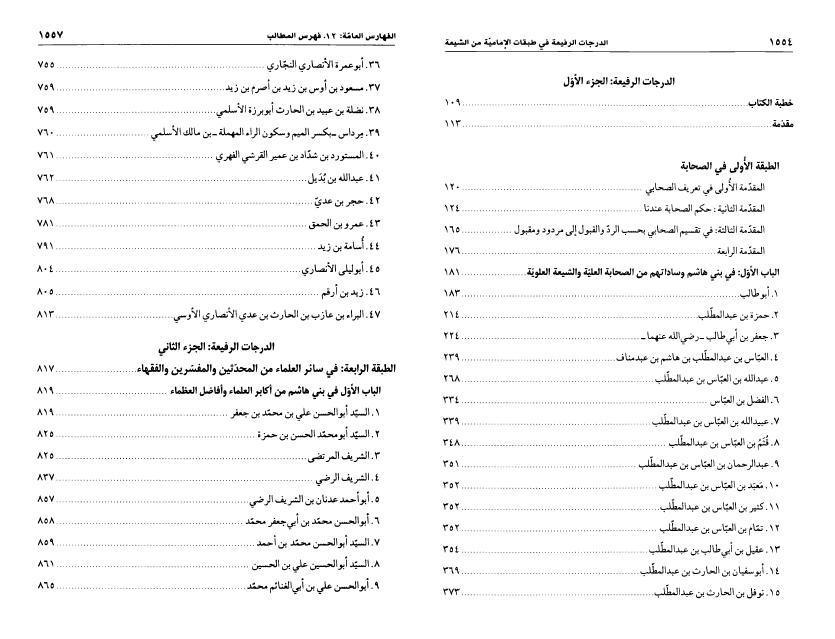 ١٥٥٤ الدرجات الرفيعة في طبقات الإماميّة من الشيعة
الدرجات الرفيعة: الجزء الأوّل
خطبة الكتاب ١٠٩
مقدّمة ١١٣
الطبقة الأُولى في الصحابة
المقدّمة الأُولى في تعريف الصحابي ١٢٠
المقدّمة الثانية: حكم الصحابة عندنا ١٢٤
المقدّمة الثالثة: في تقسيم الصحابي بحسب الردّ والقبول إلى مردود ومقبول ١٦٥
المقدّمة الرابعة ١٧٦
الباب الأوّل: في بني هاشم وساداتهم من الصحابة العليّة والشيعة العلويّة ١٨١
١. أبو طالب ١٨٣
٢. حمزة بن عبدالمطّلب ٢١٤
٣. جعفر بن أبي طالب ـ رضي الله عنهما ـ ٢٢٤
٤. العبّاس بن عبدالمطّلب بن هاشم بن عبدمناف ٢٣٩
٥. عبدالله بن العبّاس بن عبدالمطّلب ٢٦٨
٦. الفضل بن العبّاس ٣٣٤
٧. عبيدالله بن العبّاس بن عبدالمطّلب ٣٣٩
٨. قُثَم بن العبّاس بن عبدالمطّلب ٣٤٨
٩. عبدالرحمان بن العبّاس بن عبدالمطّلب ٣٥١
١٠. مَعبَد بن العبّاس بن عبدالمطّلب ٣٥٢
١١. كثير بن العبّاس بن عبدالمطّلب ٣٥٢
١٢. تمّام بن العبّاس بن عبدالمطّلب ٣٥٢
١٣. عقيل بن أبي طالب بن عبدالمطّلب ٣٥٤
١٤. أبوسفيان بن الحارث بن عبدالمطّلب ٣٦٩
١٥. نوفل بن الحارث بن عبدالمطّلب ٣٧٣
الفهارس العامّة: ١٢. فهرس المطالب ١٥٥٧
٣٦. أبو عمرة الأنصاري النجّاري ٧٥٥
٣٧. مسعود بن أوس بن زيد بن أصرم بن زيد ٧٥٩
٣٨. نضلة بن عبيد بن الحارث أبوبرزة الأسلمي ٧٥٩
٣٩. مِرداس ـ بكسر الميم وسكون الراء المهملة ـ بن مالك الأسلمي ٧٦٠
٤٠. المستورد بن شدّاد بن عمير القرشي الفهري ٧٦١
٤١. عبدالله بن بُدَيل ٧٦٢
٤٢. حجر بن عديّ ٧٦٨
٤٣. عمرو بن الحمق ٧٨١
٤٤. أُسامة بن زيد ٧٩١
٤٥. أبوليلى الأنصاري ٨٠٤
٤٦. زيد بن أرقم ٨٠٥
٤٧. البراء بن عازب بن الحارث بن عدي الأنصاري الأوسي ٨١٣
الدرجات الرفيعة: الجزء الثاني
الطبقة الرابعة: في سائر العلماء من المحدّثين والمفسّرين والفقهاء ٨١٧
الباب الأوّل في بني هاشم من أكابر العلماء وأفاضل العظماء ٨١٩
١. السيّد أبوالحسن علي بن محمّد بن جعفر ٨١٩
٢. السيّد أبومحمّد الحسن بن حمزة ٨٢٥
٣. الشريف المرتضى ٨٢٥
٤. الشريف الرضي ٨٣٧
٥. أبوأحمد عدنان بن الشريف الرضي ٨٥٧
٦. أبوالحسن محمّد بن أبي جعفر محمّد ٨٥٨
٧. السيّد أبوالحسن محمّد بن أحمد ٨٥٩
٨. السيّد أبوالحسين علي بن الحسين ٨٦١
٩. أبوالحسن علي بن أبي الغنائم محمّد ٨٦٥